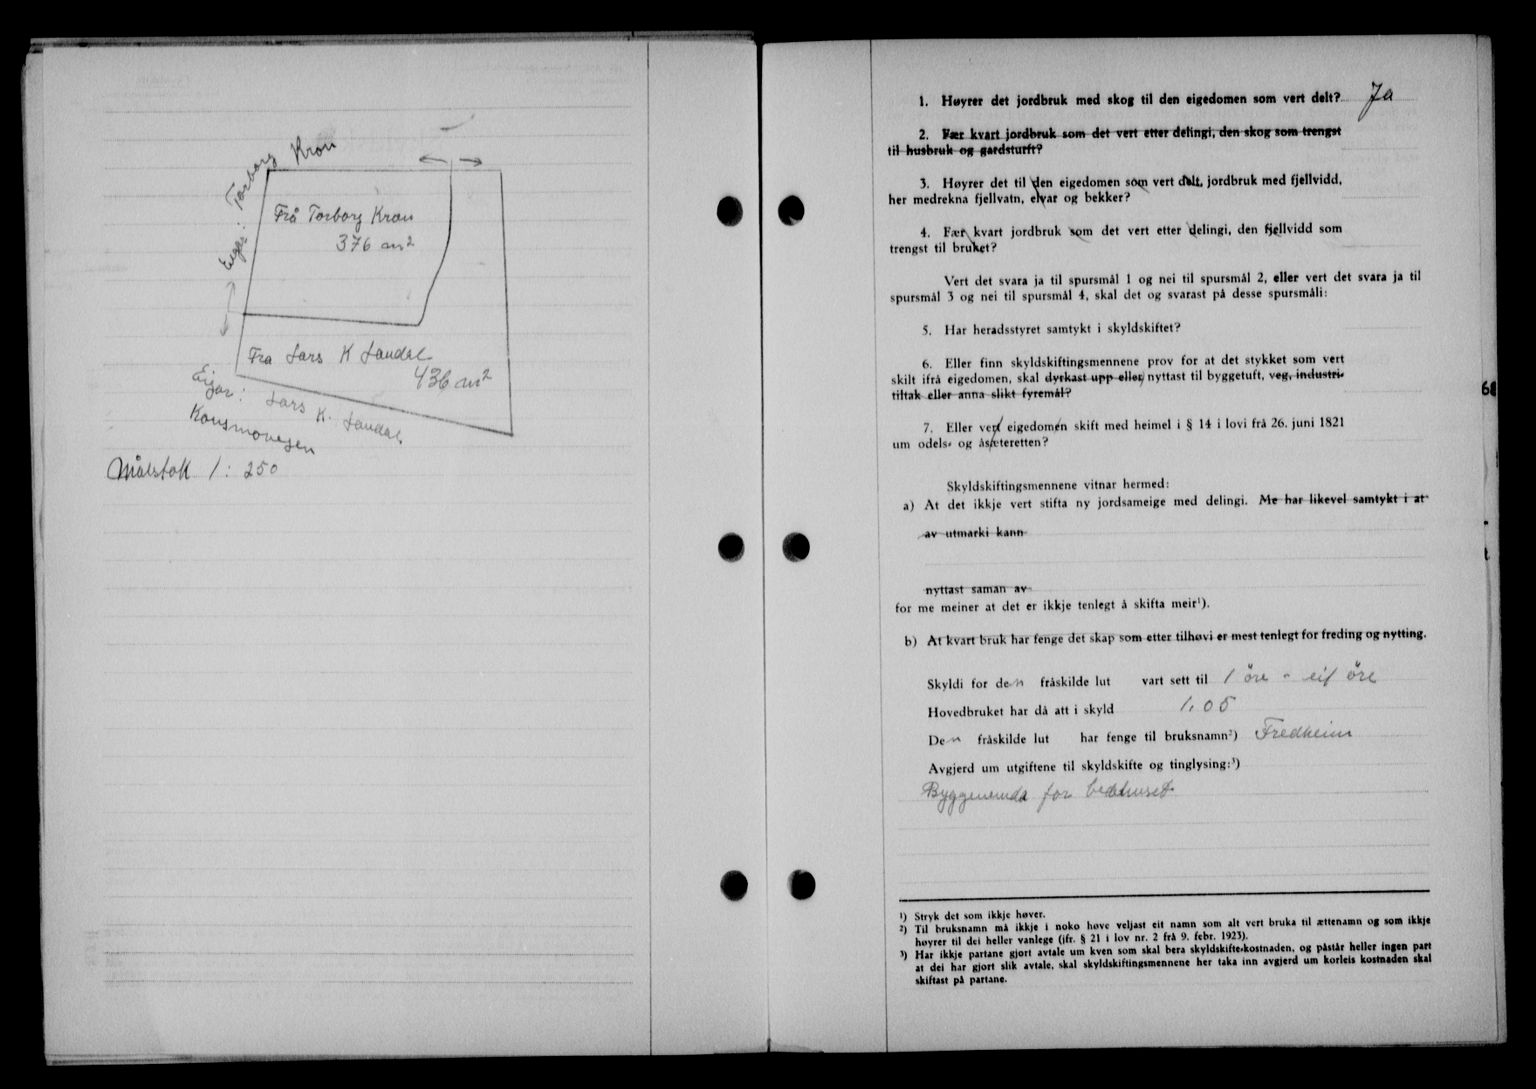 Eigar: Torborg Kron
Frå Torborg Kron
376 m²
Fra Lars K Laudal
436 m²
Eigar: Lars K. Laudal
Konsmovegen
Målstok 1:250
1. Høyrer det jordbruk med skog til den eigedomen som vert delt? Ja
2. Fær kvart jordbruk som det vert etter delingi, den skog som trengst
til husbruk og gardsturft?
3. Høyrer det til den eigedomen som vert delt, jordbruk med fjellvidd,
her medrekna fjellvatn, elvar og bekker?
4. Fær kvart jordbruk som det vert etter delingi, den fjellvidd som
trengst til bruket?
Vert det svara ja til spursmål 1 og nei til spursmål 2, eller vert det svara ja til
spursmål 3 og nei til spursmål 4, skal det og svarast på desse spursmåli:
5. Har heradsstyret samtykt i skyldskiftet?
6. Eller finn skyldskiftingsmennene prov for at det stykket som vert
skilt ifrå eigedomen, skal dyrkast upp eller nyttast til byggetuft, veg, industri-
tiltak eller anna slikt fyremål?
7. Eller vert eigedomen skift med heimel i § 14 i lovi frå 26. juni 1821
um odels- og åsæteretten?
Skyldskiftingsmennene vitnar hermed:
a) At det ikkje vert stifta ny jordsameige med delingi. Me har likevel samtykt i at
av utmarki kann
nyttast saman av
for me meiner at det er ikkje tenlegt å skifta meir¹).
b) At kvart bruk har fenge det skap som etter tilhøvi er mest tenlegt for freding og nytting.
Skyldi for den fråskilde lut vart sett til 1 öre - eit öre
Hovedbruket har då att i skyld 1,05
Den fråskilde lut har fenge til bruksnamn²) Fredheim
Avgjerd um utgiftene til skyldskifte og tinglysing:³)
Byggenemda for bedehuset
¹) Stryk det som ikkje høver.
²) Til bruksnamn må ikkje i noko høve veljast eit namn som alt vert bruka til ættenamn og som ikkje
høyrer til dei heller vanlege (jfr. § 21 i lov nr. 2 frå 9. febr. 1923).
³) Har ikkje partane gjort avtale um kven som skal bera skyldskifte-kostnaden, og påstår heller ingen part
at dei har gjort slik avtale, skal skyldskiftingsmennene her taka inn avgjerd um korleis kostnaden skal
skiftast på partane.